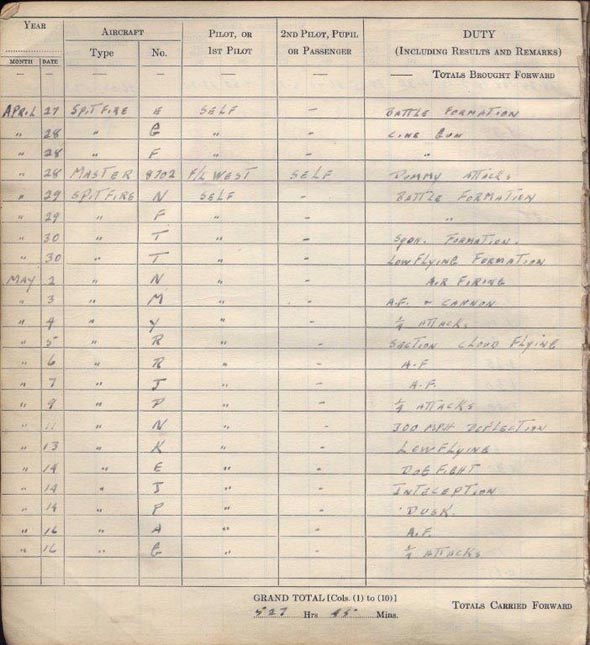 YEAR AIRCRAFT PILOT, OR 2ND PILOT, PUPIL DUTY
1ST PILOT OR PASSENGER (INCLUDING RESULTS AND REMARKS)
MONTH DATE Type No.
— — — — — — — TOTALS BROUGHT FORWARD
APRIL 27 SPITFIRE E SELF - BATTLE FORMATION
" 28 " G " - CINE GUN
" 28 " F " - "
" 28 MASTER 8702 F/L WEST SELF DUMMY ATTACKS
" 29 SPITFIRE N SELF - BATTLE FORMATION
" 29 " F " - "
" 30 " T " - SQDN. FORMATION.
" 30 " T " - LOW FLYING FORMATION
MAY 2 " N " - AIR FIRING
" 3 " M " - A.F. & CANNON
" 4 " Y " - ¼ ATTACKS
" 5 " R " - SECTION CLOUD FLYING
" 6 " R " - A.F
" 7 " J " - A.F.
" 9 " P " - ¼ ATTACKS
" 11 " N " - 300 MPH DEFLECTION
" 13 " K " - LOW FLYING
" 14 " E " - DOG FIGHT
" 14 " J " - INTECEPTION
" 14 " P " - DUSK.
" 16 " A " - A.F.
" 16 " G " - ¼ ATTACKS
GRAND TOTAL [Cols. (1) to (10)]
527 Hrs 45 Mins. TOTALS CARRIED FORWARD